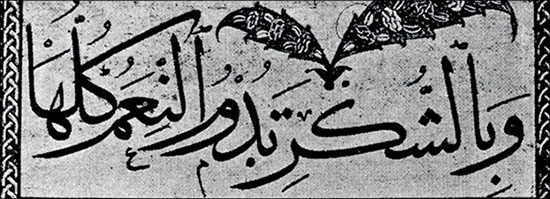 وَبِالشُّكْرِ تَدُومُ النِّعَمُ كُلُّهَا